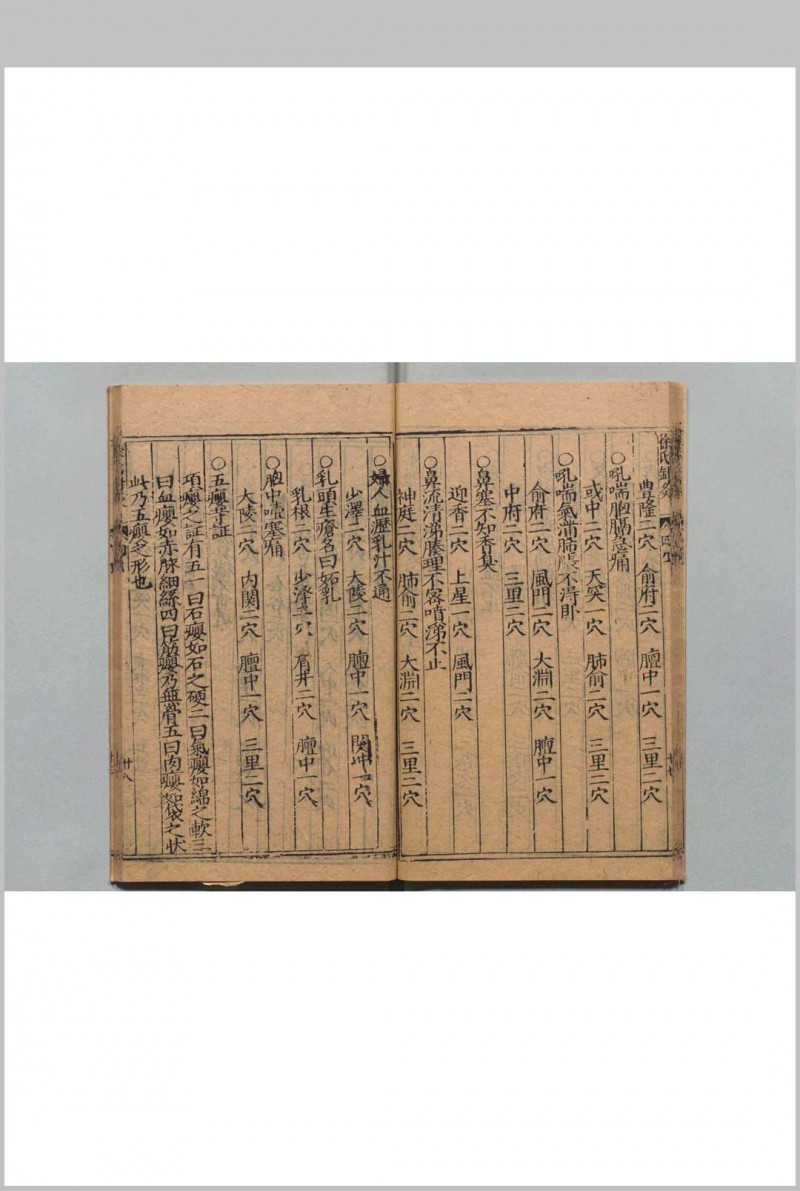 徐氏鍼灸
豊隆二穴　俞府二穴　膻中一穴　三里二穴
○吼喘胸膈急痛
彧中二穴　天突一穴　肺俞二穴　三里二穴
○吼喘氣滿肺脹不得臥
俞府二穴　風門二穴　大淵二穴　膻中一穴
中府二穴　三里二穴
○鼻塞不知香臭
迎香二穴　上星一穴　風門二穴
○鼻流清涕腠理不密噴涕不止
神庭一穴　肺俞二穴　大淵二穴　三里二穴
○婦人血瀝乳汁不通
少澤二穴　大陵二穴　膻中一穴　関冲二穴
○乳頭生瘡名曰妬乳
乳根二穴　少澤二穴　肩井二穴　膻中一穴
○胸中噎塞痛
大陵二穴　内関二穴　膻中一穴　三里二穴
○五癭等証
項癭之証有五一曰石癭如石之硬二曰氣癭如綿之軟三
曰血癭如赤脉細絲四曰筋癭乃無骨五曰肉癭如袋之状
此乃五癭之形也
廿八